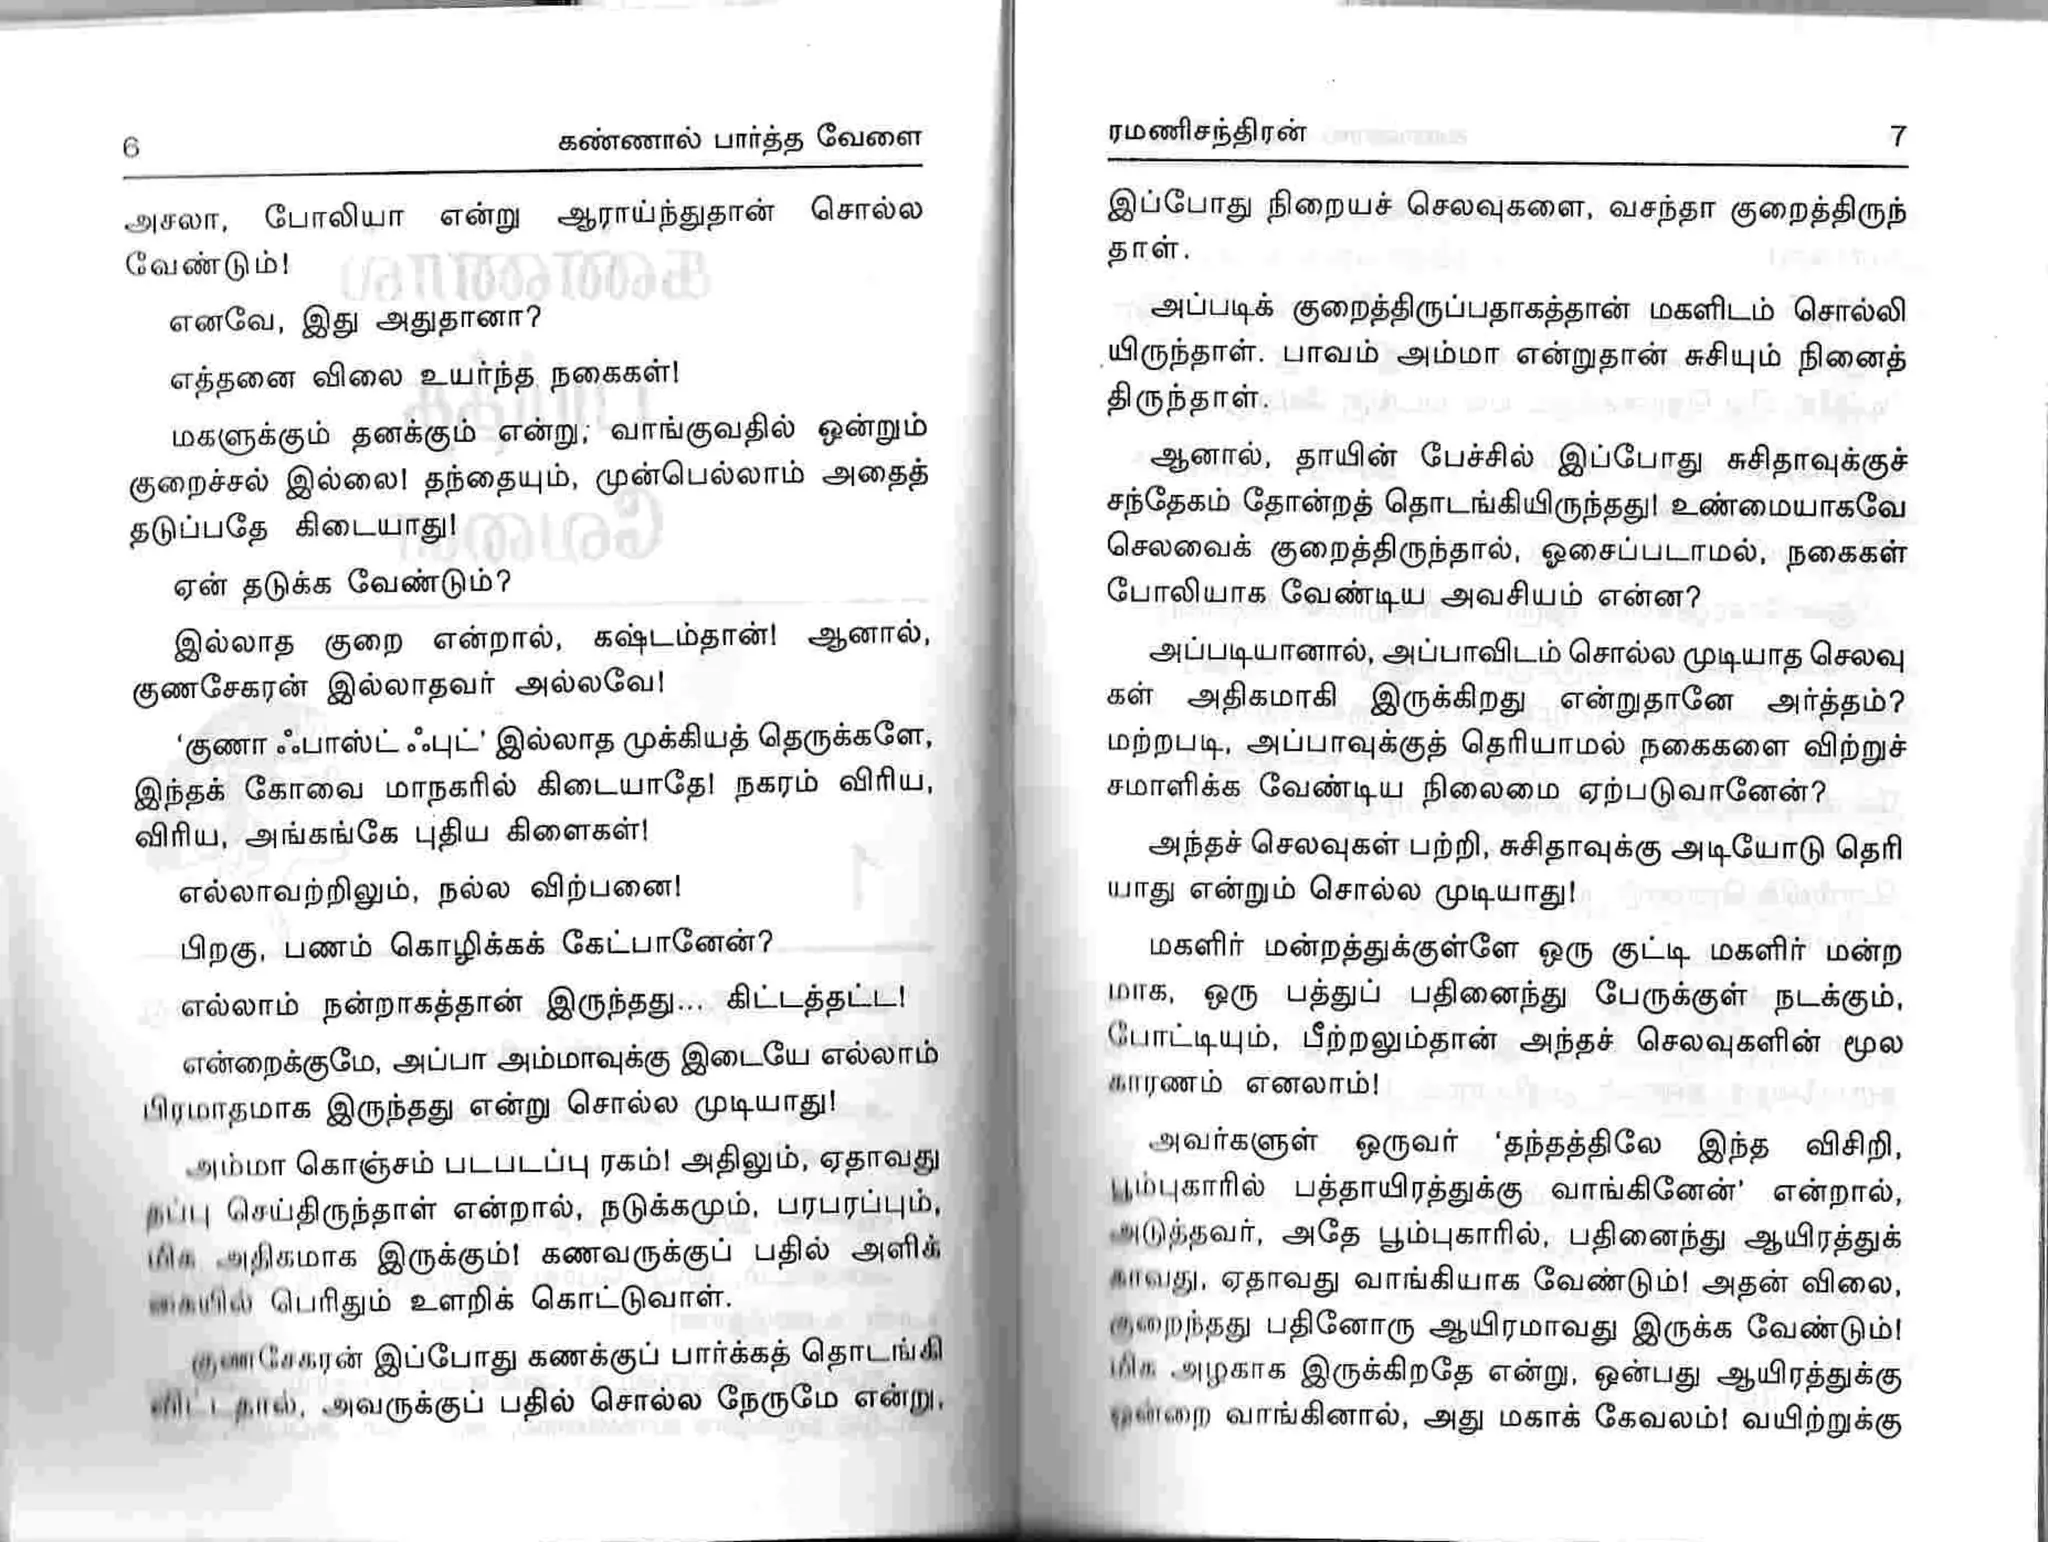 6
கண்ணால் பார்த்த வேளை
அசலா, போலியா என்று ஆராய்ந்துதான் சொல்ல
வேண்டும்!
எனவே, இது அதுதானா?
எத்தனை விலை உயர்ந்த நகைகள்!
மகளுக்கும் தனக்கும் என்று, வாங்குவதில் ஒன்றும்
குறைச்சல் இல்லை! தந்தையும், முன்பெல்லாம் அதைத்
தடுப்பதே கிடையாது!
ஏன் தடுக்க வேண்டும்?
இல்லாத குறை என்றால், கஷ்டம்தான்! ஆனால்,
குணசேகரன் இல்லாதவர் அல்லவே!
‘குணா ஃபாஸ்ட் ஃபுட்’ இல்லாத முக்கியத் தெருக்களே,
இந்தக் கோவை மாநகரில் கிடையாதே! நகரம் விரிய,
விரிய, அங்கங்கே புதிய கிளைகள்!
எல்லாவற்றிலும், நல்ல விற்பனை!
பிறகு, பணம் கொழிக்கக் கேட்பானேன்?
எல்லாம் நன்றாகத்தான் இருந்தது... கிட்டத்தட்ட!
என்றைக்குமே, அப்பா அம்மாவுக்கு இடையே எல்லாம்
பிரமாதமாக இருந்தது என்று சொல்ல முடியாது!
அம்மா கொஞ்சம் படபடப்பு ரகம்! அதிலும், ஏதாவது
தப்பு செய்திருந்தாள் என்றால், நடுக்கமும், பரபரப்பும்,
மிக அதிகமாக இருக்கும்! கணவருக்குப் பதில் அளிக்
கையில் பெரிதும் உளறிக் கொட்டுவாள்.
குணசேகரன் இப்போது கணக்குப் பார்க்கத் தொடங்கி
விட்டதால், அவருக்குப் பதில் சொல்ல நேருமே என்று,
ரமணிசந்திரன்
7
இப்போது நிறையச் செலவுகளை, வசந்தா குறைத்திருந்
தாள்.
அப்படிக் குறைத்திருப்பதாகத்தான் மகளிடம் சொல்லி
யிருந்தாள். பாவம் அம்மா என்றுதான் சுசியும் நினைத்
திருந்தாள்.
ஆனால், தாயின் பேச்சில் இப்போது சுசிதாவுக்குச்
சந்தேகம் தோன்றத் தொடங்கியிருந்தது! உண்மையாகவே
செலவைக் குறைத்திருந்தால், ஓசைப்படாமல், நகைகள்
போலியாக வேண்டிய அவசியம் என்ன?
அப்படியானால், அப்பாவிடம் சொல்ல முடியாத செலவு
கள் அதிகமாகி இருக்கிறது என்றுதானே அர்த்தம்?
மற்றபடி, அப்பாவுக்குத் தெரியாமல் நகைகளை விற்றுச்
சமாளிக்க வேண்டிய நிலைமை ஏற்படுவானேன்?
அந்தச் செலவுகள் பற்றி, சுசிதாவுக்கு அடியோடு தெரி
யாது என்றும் சொல்ல முடியாது!
மகளிர் மன்றத்துக்குள்ளே ஒரு குட்டி மகளிர் மன்ற
மாக, ஒரு பத்துப் பதினைந்து பேருக்குள் நடக்கும்,
போட்டியும், பீற்றலும்தான் அந்தச் செலவுகளின் மூல
காரணம் எனலாம்!
அவர்களுள் ஒருவர் ‘தந்தத்திலே இந்த விசிறி,
பூம்புகாரில் பத்தாயிரத்துக்கு வாங்கினேன்’ என்றால்,
அடுத்தவர், அதே பூம்புகாரில், பதினைந்து ஆயிரத்துக்
காவது, ஏதாவது வாங்கியாக வேண்டும்! அதன் விலை,
குறைந்தது பதினோரு ஆயிரமாவது இருக்க வேண்டும்!
மிக அழகாக இருக்கிறதே என்று, ஒன்பது ஆயிரத்துக்கு
ஒன்றை வாங்கினால், அது மகாக் கேவலம்! வயிற்றுக்கு